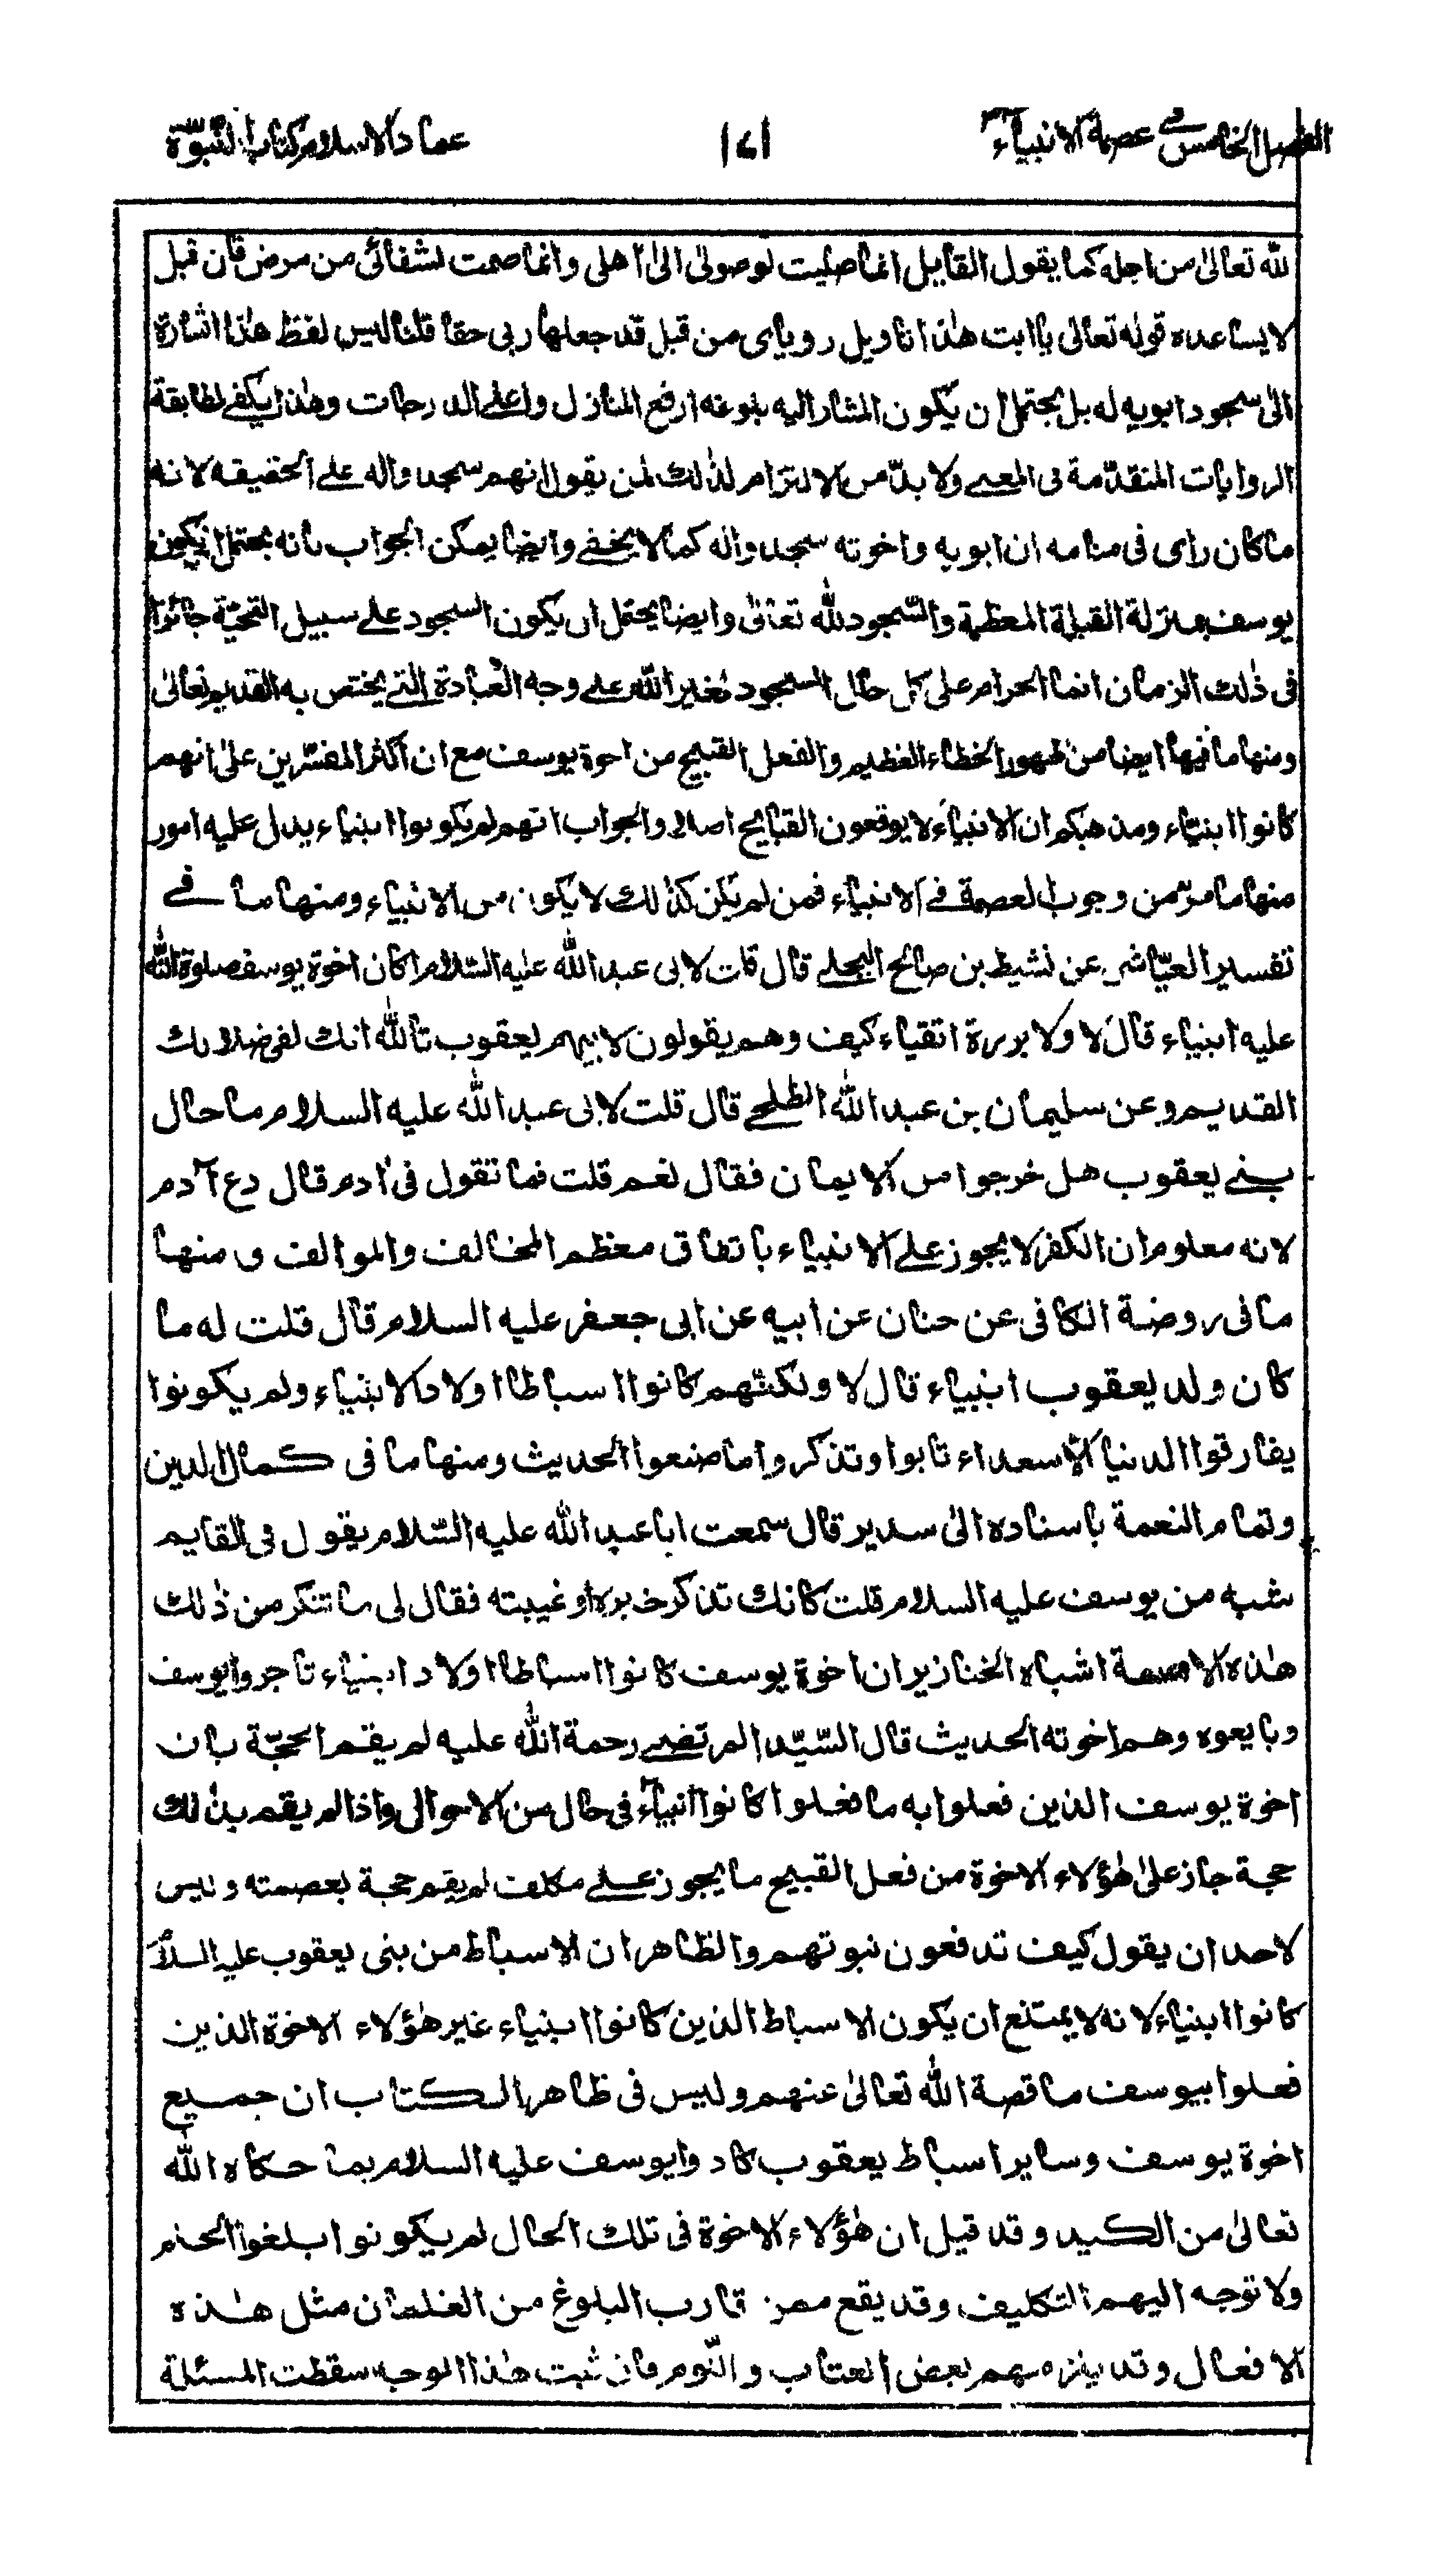 الفصل الخامس في عصمة الانبياء
١٤١
عماد الاسلام كتاب النبوّة
للّه تعالىٰ من اجله كما يقول القايل انما صليت لوصولى الىٰ اهلى وانما صمت لشفائى من مرض فان قيل
لا يساعده قوله تعالى يا ابت هٰذا تاويل روياى من قبل قد جعلها ربى حقا قلنا ليس لفظ هٰذا اشارة
الىٰ سجود ابويه له بل يحتمل ان يكون المشار اليه بلوغه ارفع المنازل واعلى الدرجات وهٰذا يكفى لمطابقة
الروايات المتقدّمة فى المعنى ولا بدّ من الالتزام لذٰلك لمن يقول انهم سجدوا له على الحقيقه لانه
ما كان راى فى منامه ان ابويه واخوته سجدوا له كما لا يخفى وايضا يمكن الجواب بانه يحتمل ان يكون
يوسف بمنزلة القبلة المعظمة والسّجود للّٰه تعالىٰ وايضا يحتمل ان يكون السجود على سبيل التحيّة جائزا
فى ذٰلك الزمان انما الحرام على كل حال السجود لغير اللّٰه على وجه العبادة التى يختص به القديم تعالىٰ
ومنها ما فيها ايضا من ظهور الخطاء العظيم والفعل القبيح من اخوة يوسف مع ان اكثر المفسّرين علىٰ انهم
كانوا انبياء ومذهبكم ان الانبياء لا يوقعون القبايح اصلا والجواب انهم لم يكونوا انبياء يدل عليه امور
منها ما مرّ من وجوب العصمة فى الانبياء فمن لم يكن كذٰلك لا يكون من الانبياء ومنها ما فى
تفسير العيّاشى عن نشيط بن صالح البجلى قال قلت لابى عبد اللّٰه عليه السّلام اكان اخوة يوسف صلوة اللّٰه
عليه انبياء قال لا ولا بررة اتقياء كيف وهم يقولون لابيهم يعقوب تاللّٰه انك لفى ضلالك
القديم وعن سليمان بن عبد اللّٰه الطلحى قال قلت لابى عبد اللّٰه عليه السلام ما حال
بنى يعقوب هل خرجوا من الايمان فقال نعم قلت فما تقول فى ادم قال دع آدم
لانه معلوم ان الكفر لا يجوز على الانبياء باتفاق معظم المخالف والموالف و منها
ما فى روضة الكافى عن حنان عن ابيه عن ابى جعفر عليه السلام قال قلت له ما
كان ولد يعقوب انبياء قال لا ولكنّهم كانوا اسباطا اولاد الانبياء ولم يكونوا
يفارقوا الدنيا الّا سعداء تابوا وتذكروا ما صنعوا الحديث ومنها ما فى كمال الدين
وتمام النعمة باسناده الىٰ سدير قال سمعت ابا عبد اللّٰه عليه السّلام يقول فى القايم
شبه من يوسف عليه السلام قلت كانك تذكر خبره او غيبته فقال لى ما تنكر من ذٰلك
هٰذه الامة اشباه الخنازير ان اخوة يوسف كانوا اسباطا اولاد انبياء تاجروا يوسف
وبايعوه وهم اخوته الحديث قال السّيّد المرتضى رحمة اللّٰه عليه لم يقم الحجّة بان
اخوة يوسف الذين فعلوا به ما فعلوا كانوا انبياء فى حال من الاحوالى واذا لم يقم بذٰلك
حجة جاز علىٰ هٰؤلاء الاخوة من فعل القبيح ما يجوز على مكلف لم يقم حجة بعصمته وليس
لاحد ان يقول كيف تدفعون نبوتهم والظاهر ان الاسباط من بنى يعقوب عليه السلام
كانوا انبياء لانه لا يمتنع ان يكون الاسباط الذين كانوا انبياء غير هٰؤلاء الاخوة الذين
فعلوا بيوسف ما قصة اللّٰه تعالىٰ عنهم وليس فى ظاهر الكتاب ان جميع
اخوة يوسف وساير اسباط يعقوب كادوا يوسف عليه السلام بما حكاه اللّٰه
تعالىٰ من الكيد وقد قيل ان هٰؤلاء الاخوة فى تلك الحال لم يكونوا بلغوا الحلم
ولا توجه اليهم التكليف وقد يقع ممن قارب البلوغ من الغلمان مثل هٰذه
الافعال وقد يلزمهم بعض العتاب واللّوم فان ثبت هٰذا الوجه سقطت المسئلة